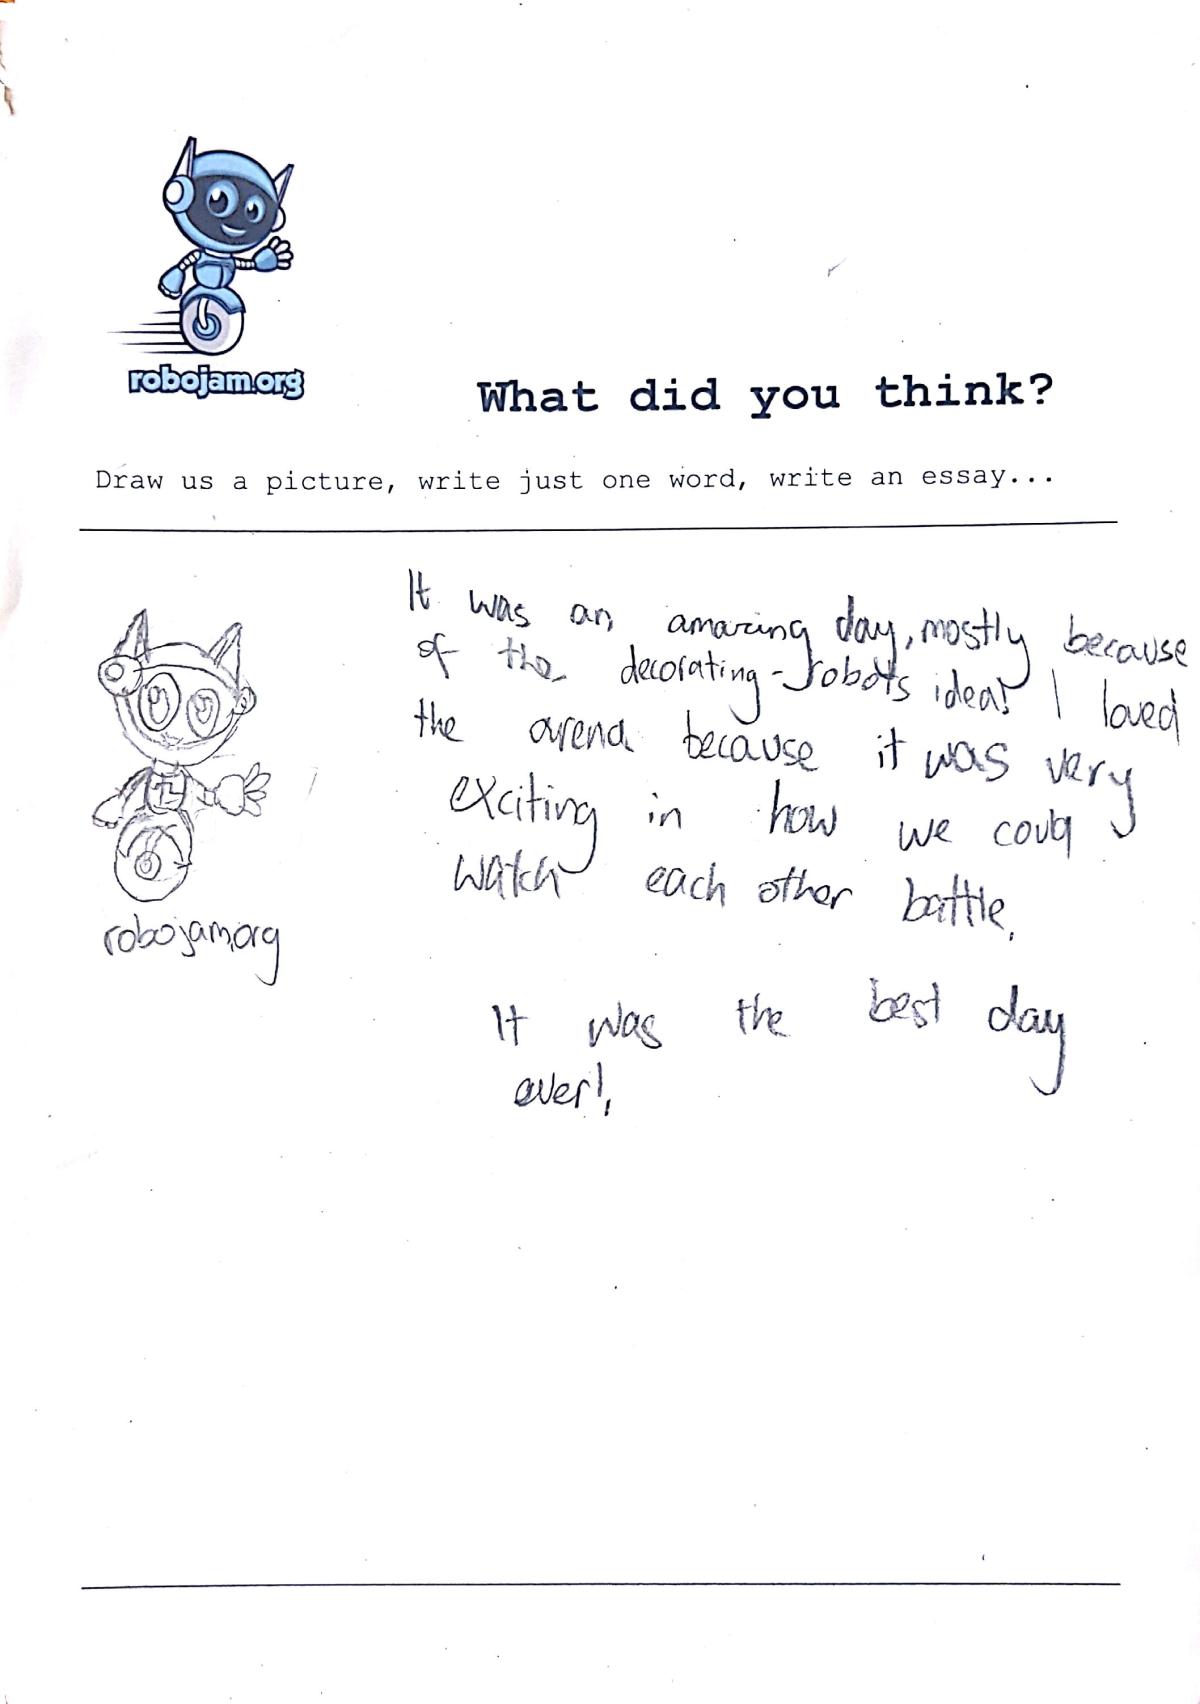 robojam.org
What did you think?
Draw us a picture, write just one word, write an essay...
It was an amazing day, mostly because
of the decorating-robots idea! I loved
the arena because it was very
exciting in how we could
watch each other battle.
It was the best day
ever!.
robojam.org